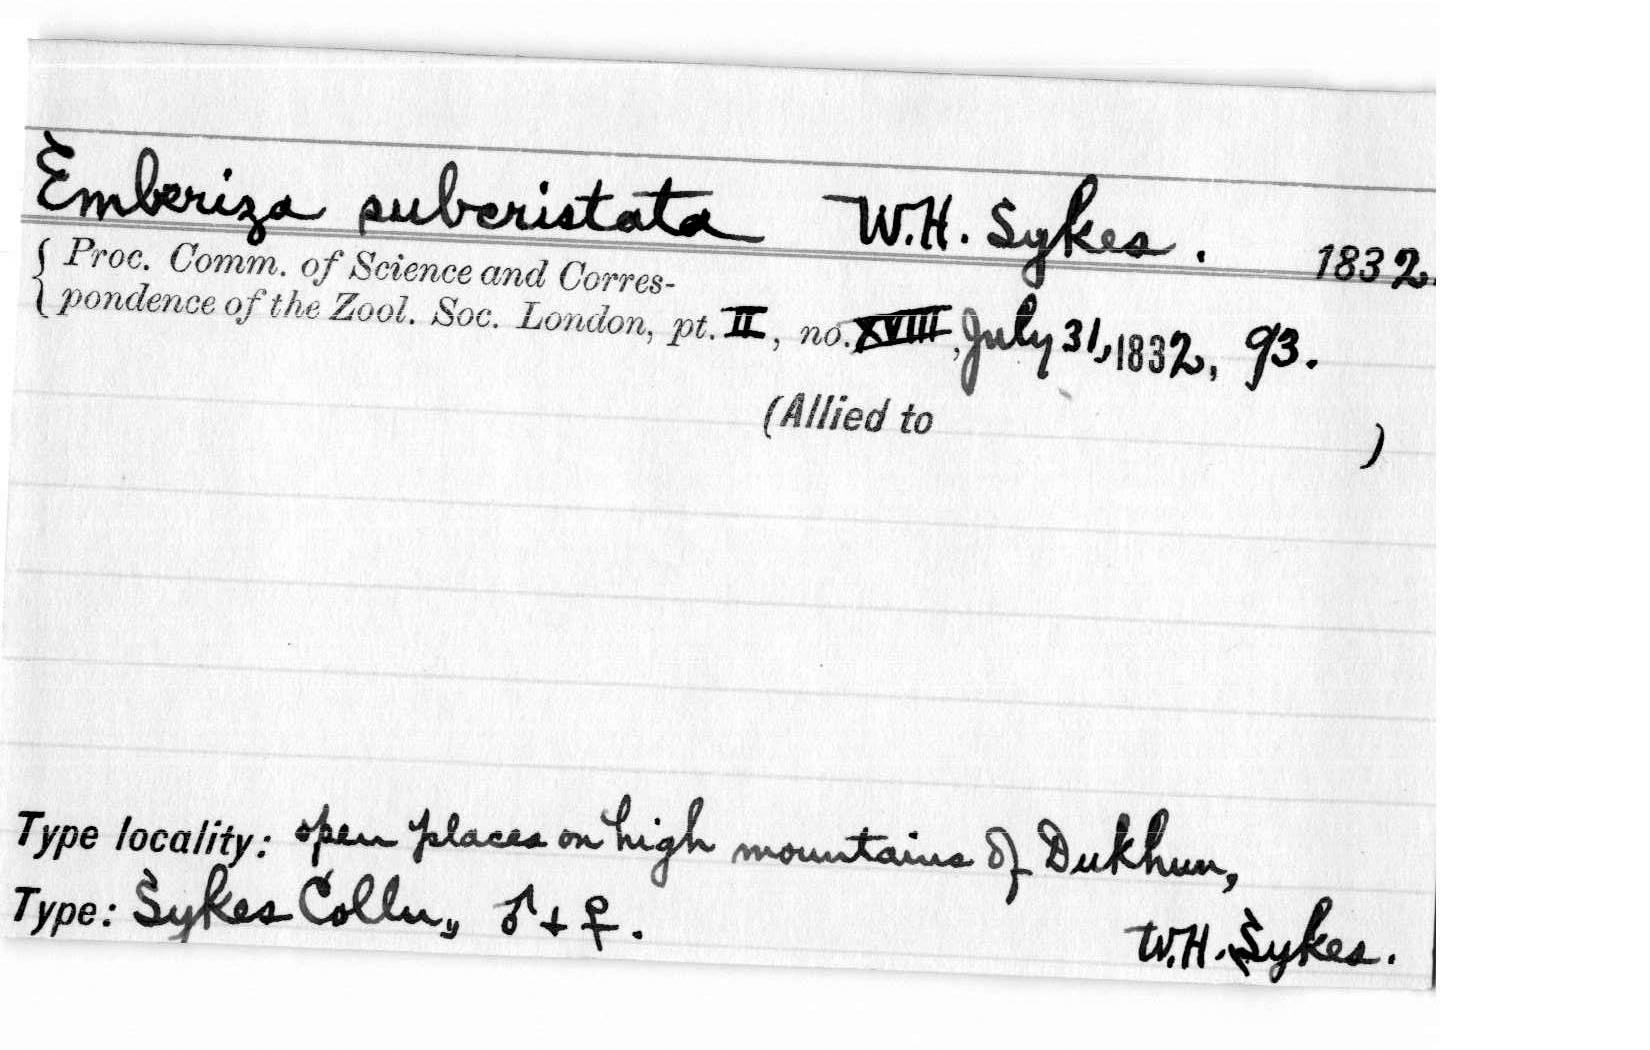 Emberiza subcristata W.H. Sykes. 1832.
{ Proc. Comm. of Science and Corres-
pondence of the Zool. Soc. London, pt. II, no. XVIII, July 31, 1832, 93.
(Allied to )
Type locality: open places on high mountains of Dukhun,
Type: Sykes Colln., ♂ + ♀. W.H. Sykes.